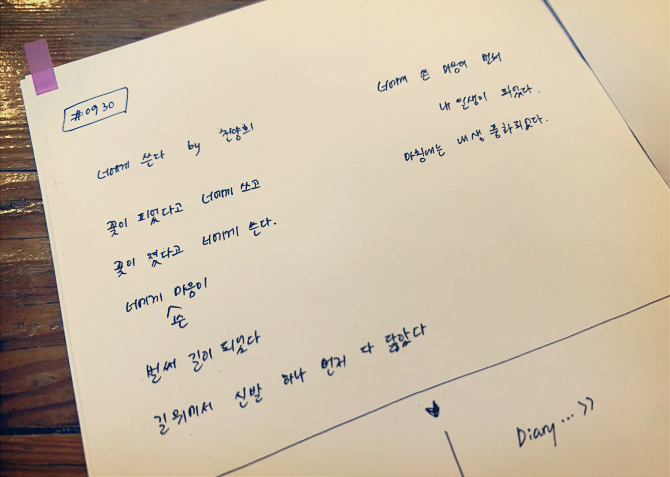 #0930
너에게 쓴다 by 천양희
꽃이 피었다고 너에게 쓰고
꽃이 졌다고 너에게 쓴다.
너에게 마음이
쓴
벌써 길이 되었다
길 위에서 신발 하나 먼저 다 닳았다
너에게 쓴 마음이 벌써
내 일생이 되었다.
마침내는 내 생 풍화되었다.
Diary...>>